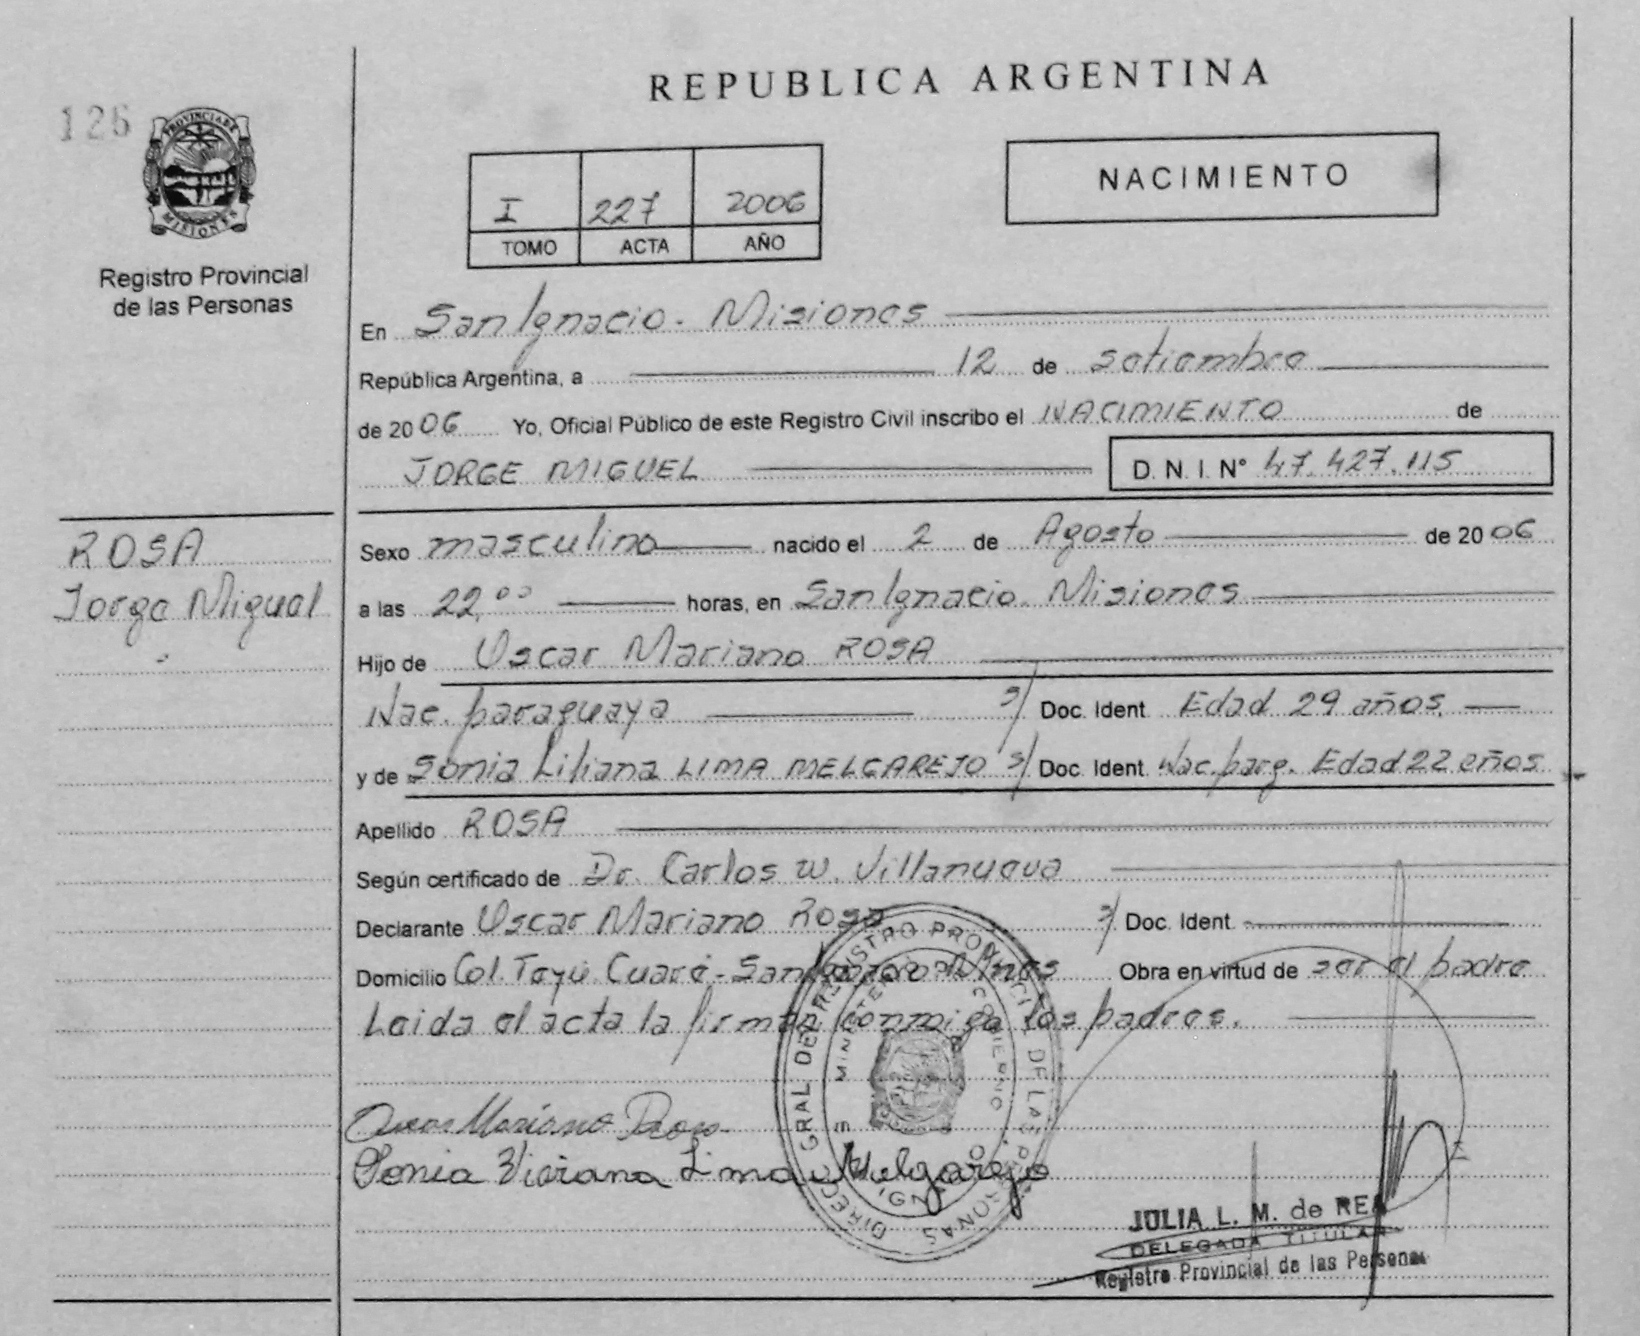 REPUBLICA ARGENTINA
126
PROVINCIA DE
MISIONES
Registro Provincial
de las Personas
NACIMIENTO
I 227 2006
TOMO ACTA AÑO
En San Ignacio - Misiones
República Argentina, a 12 de setiembre
de 2006 Yo, Oficial Público de este Registro Civil inscribo el NACIMIENTO de
JORGE MIGUEL D. N. I. N° 47.427.115
ROSA
Jorge Miguel
Sexo masculino nacido el 2 de Agosto de 2006
a las 22,00 horas, en San Ignacio Misiones
Hijo de Oscar Mariano ROSA
Nac. paraguaya s/ Doc. Ident. Edad 29 años.
y de Sonia Liliana LIMA MELGAREJO s/ Doc. Ident. Nac. parg. Edad 22 años
Apellido ROSA
Según certificado de Dr. Carlos W. Villanueva
Declarante Oscar Mariano Rosa s/ Doc. Ident.
Domicilio Col. Teyú Cuaré - San Ignacio Mnes Obra en virtud de ser el padre
Leida el acta la firman conmigo los padres.
DIRECC GRAL DE REGISTRO PROVINCIAL DE LAS PERSONAS
MINISTERIO DE GOBIERNO
Mariano Rosa
Sonia Viviana Lima Melgarejo
JULIA L. M. de REA
DELEGADA TITULAR
Registro Provincial de las Personas